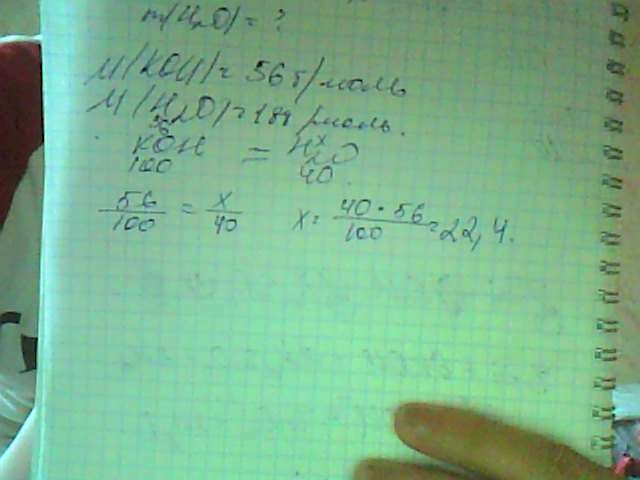 m(H₂O) = ?
M(KOH) = 56 г/моль
M(H₂O) = 18 г/моль.
56 x
KOH = H₂O
100 40.
56/100 = x/40 x = 40·56/100 = 22,4.